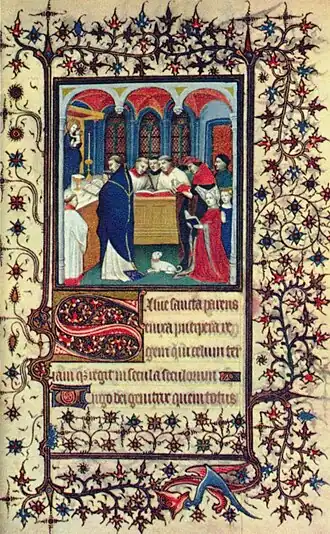 Salve sancta parens
enixa puerpera re
gem qui celum ter
ram q; regit in secula seculorum
Virgo dei genitrix quem totus